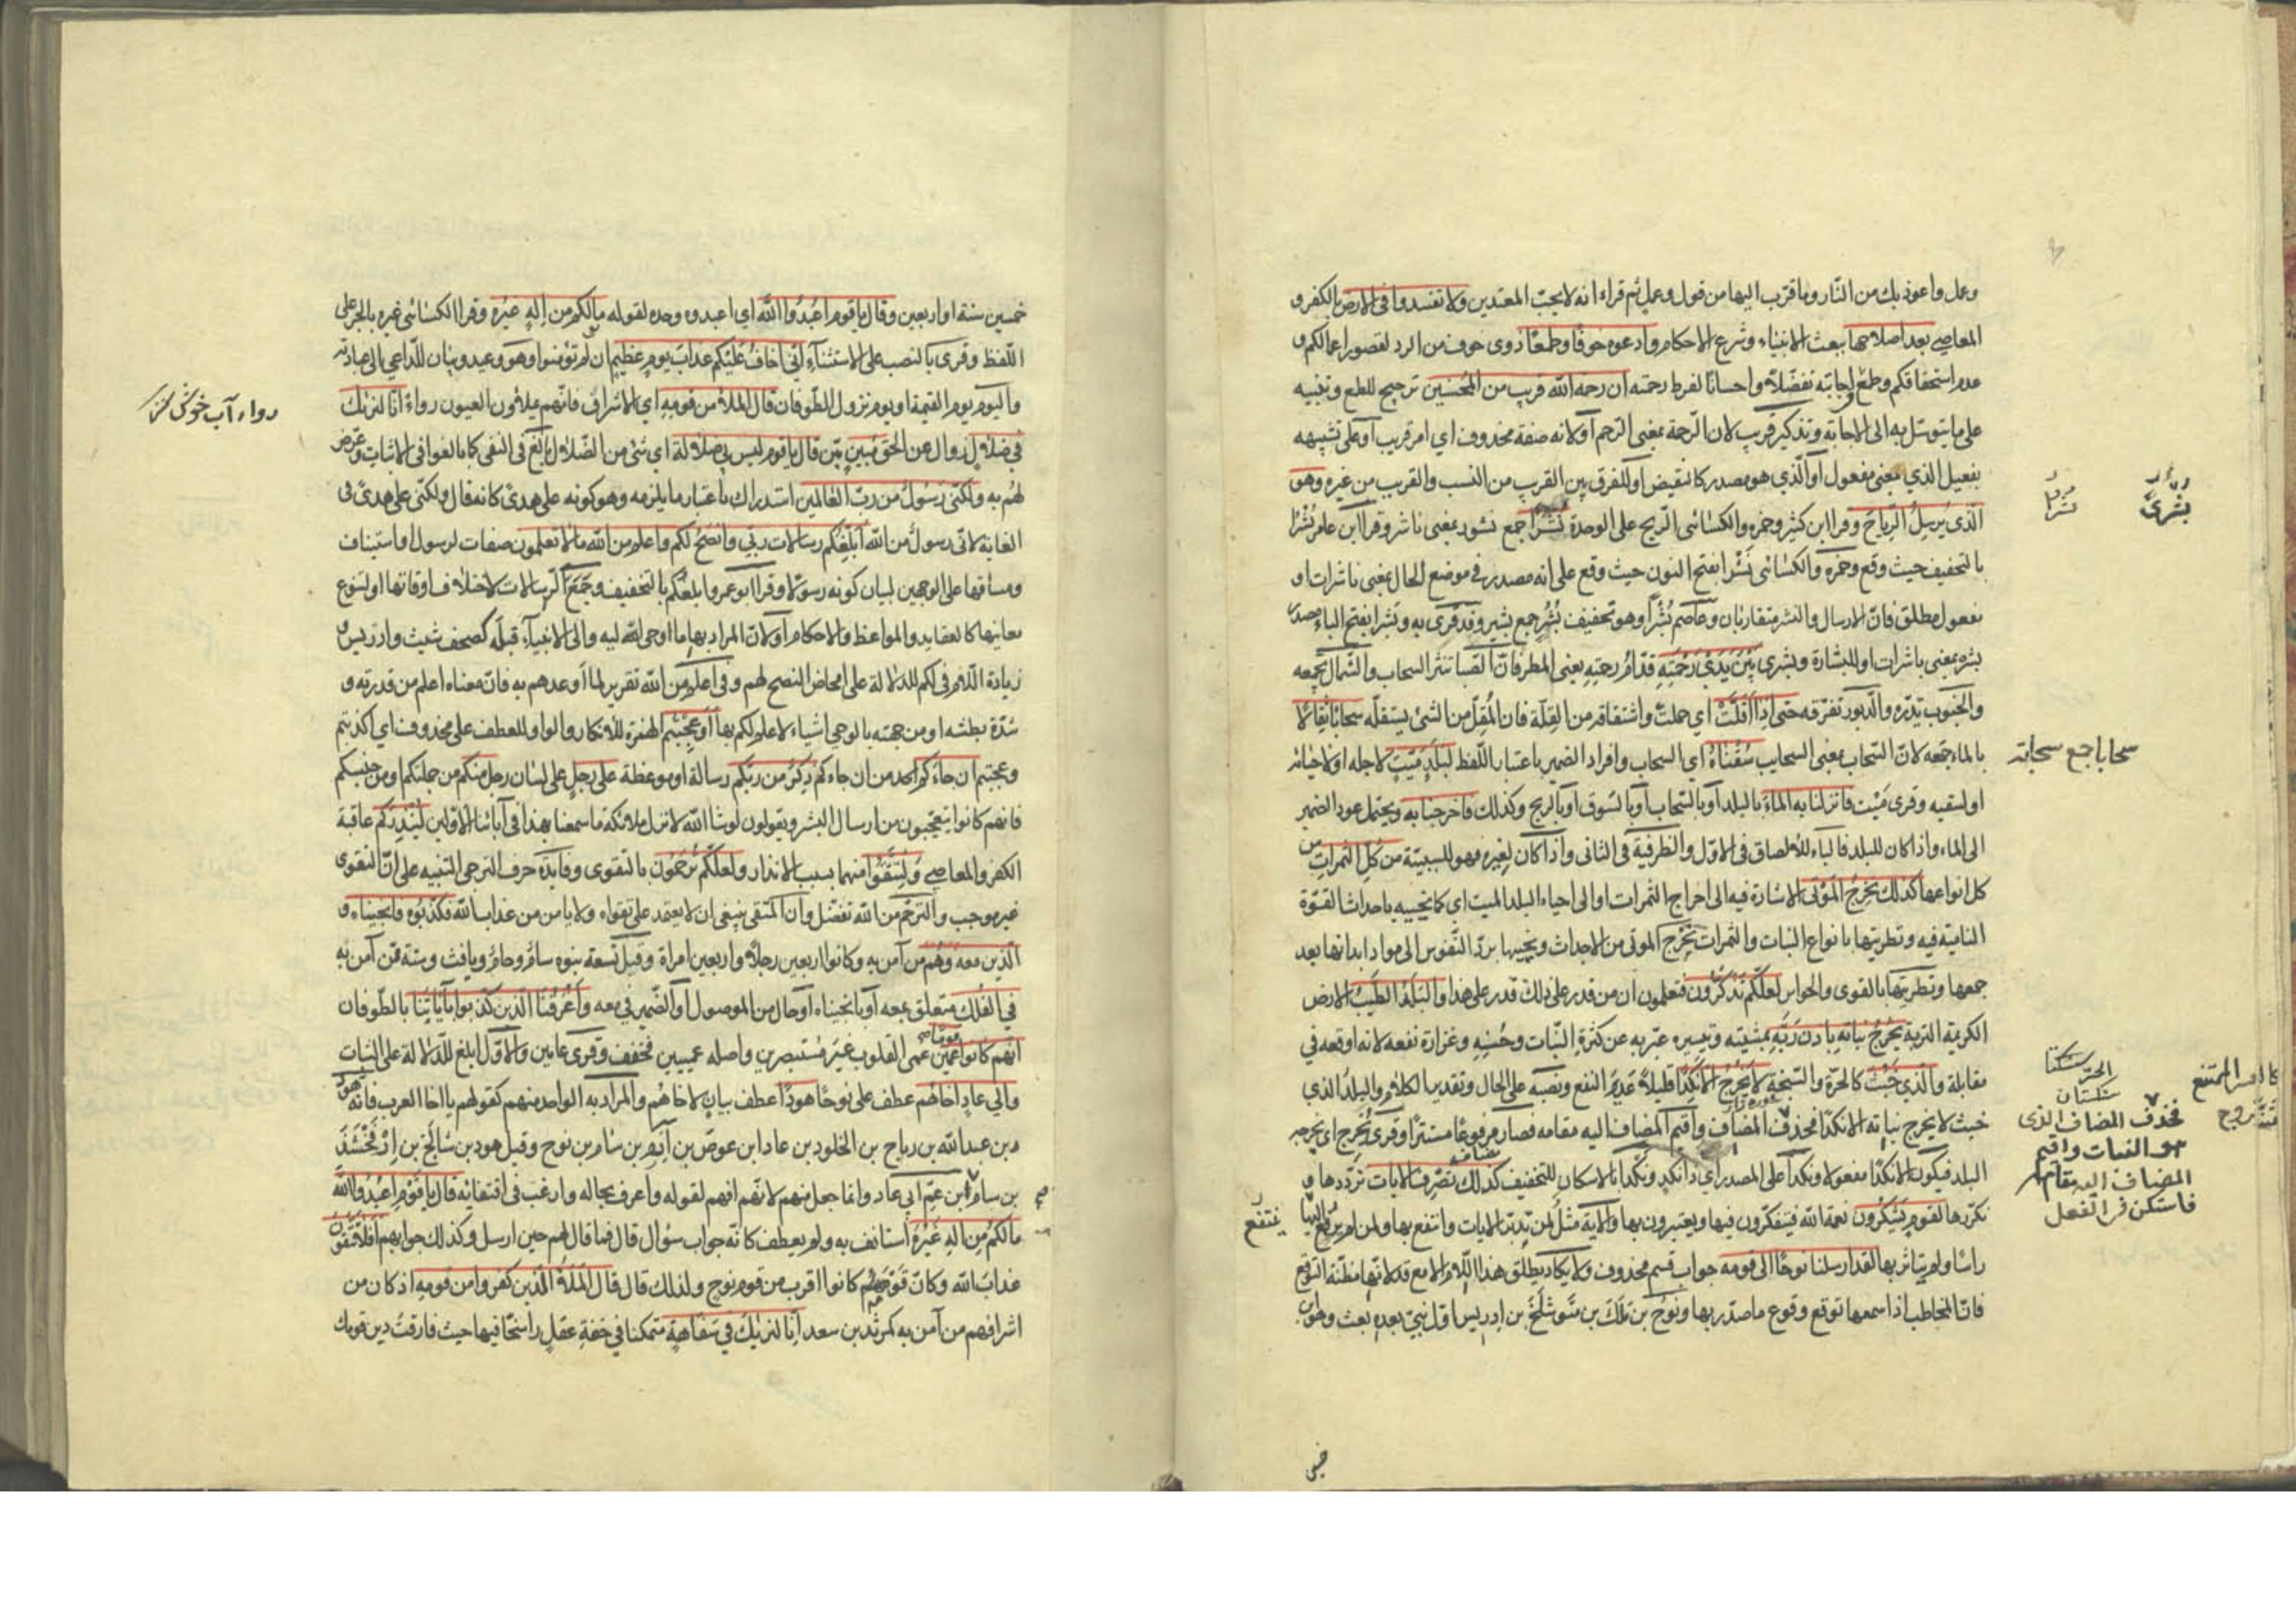 وعمل واعوذ بك من النّار وما قرّب اليها من قول وعمل ثم قراء انه لا يحبّ المعتدين ولا تفسدوا فى الارض بالكفر و
المعاصي بعد اصلاحها ببعث الانبياء وشرع الاحكام وادعوه خوفًا وطمعًا ذوى خوف من الرد لقصور اعمالكم و
عدم استحقاقكم وطمع في اجابته تفضّلا واحسانًا لفرط رحمته ان رحمة الله قريب من المحسنين ترجيح للطمع وتنبيه
على ما يتوسّل به الى الاجابة وتذكير قريب لان الرّحمة بمعنى الترحم او لانه صفة محذوف اي امر قريب او على تشبيهه
بفعيل الذي بمعنى مفعول او الّذي هو مصدر كالنقيض او للفرق بين القريب من النسب والقريب من غيره وهو
الّذي يُرسِلُ الرِّياحَ وقرا ابن كثير وحمزه والكسائى الرّيح على الوحدة نُشُرًا جمع نشور بمعنى ناشر وقرا ابن عامر نُشْرًا
بالتخفيف حيث وقع وحمزه والكسائى نَشْرا بفتح النون حيث وقع على انه مصدر في موضع الحال بمعنى ناشرات او
مفعول مطلق فانّ الارسال والنشر متقاربان وعاصم بُشْرًا وهو تخفيف بُشُرٍ جمع بشير وقد قرى به وبَشْرا بفتح الباء مصدر
بشره بمعنى باشرات او للبشارة وبشرى بَيْنَ يَدَيْ رَحْمَتِهِ قدّام رحمته يعنى المطر فانّ الصّبا تثير السحاب والشّمال تجمعه
والجنوب تدرّه والدّبور تفرّقه حتى اذا اَقَلَّتْ اي حملت واشتقاقه من القِلّة فان المُقِلّ من الشئ يستقلّه سحابًا ثِقالًا
بالماء جمعه لانّ السّحاب بمعنى السحايب سُقْناهُ اي السحاب وافراد الضمير باعتبار اللّفظ لِبَلَدٍ مَيِّتٍ لاجله او لاحيائه
او لسقيه وقرى مَيْت فانزلنا به الماءَ بالبلد او بالسّحاب او بالسّوق او بالريح وكذلك فاخرجنا به ويحتمل عود الضمير
الى الماء واذا كان للبلد فالباء للالصاق فى الاوّل والظرفية فى الثانى واذا كان لغيره فهو للسببيّة من كلّ الثّمرات من
كل انواعها كذلك نُخرِجُ المَوْتى الاشارة فيه الى اخراج الثمرات او الى احياء البلد الميت اي كما نحييه باحداث القوّة
الناميّة فيه وتطريتها بانواع النبات والثمرات نُخْرِج الموتى من الاجداث ونحييها بردّ النّفوس الى مواد ابدانها بعد
جمعها وتطريتها بالقوى والحواس لَعلَّكم تَذَكَّرون فتعلمون ان من قدر على ذلك قدر على هذا والبَلَدُ الطَّيِّبُ الارض
الكريمة التربة يَخْرُجُ نباتُه بِاذن رَبِّهِ بمشيته وتيسيره عبّر به عن كثرة النّبات وحُسْنِه وغزارة نفعه لانه اوقعه في
مقابلة والّذي خَبُثَ كالحرّة والسّبخة لا يَخْرُجُ الّا نَكِدًا قليلًا عديم النفع ونصبُه على الحال وتقدير الكلام والبلدُ الذي
خبث لا يخرج نباته الا نكدًا فحذف المضاف واقيم المضاف اليه مقامه فصار مرفوعًا مستترًا وقرى يُخرِج اي يخرجه
البلد فيكون الا نكدًا مفعولا ونكَدًا على المصدر اي ذا نكد ونَكْدًا بالاسكان للتخفيف كذلك نُصرِّف الايات نردّدها و
نكرّرها لقوم يَشكُرُون نعمة الله فيتفكّرون فيها ويعتبرون بها والاية مثل لمن تدبّر الايات وانتفع بها ولمن لم يرفع اليها
راسًا ولم يتاثر بها لقد ارسلنا نوحًا الى قومه جواب قسم محذوف ولا يكاد يطلق هذا اللّام الا مع قد لانّها مظنّة التوقع
فانّ المخاطب اذا سمعها توقع وقوع ما صدّر بها ونوحُ بن مَلَك بن متّوشلَخ بن ادريس اوّل نبيّ بعده بعث وهو ابن
بشرىً
نشرا
سحابا جمع سحابة
فحذف المضاف الذى
هو النبات واقيم
المضاف اليه مقامه
فاستكن فى الفعل
ينتفع
خمسين سنة او اربعين وقال ياقوم اعْبُدُوا اللهَ اي اعبدوه وحده لقوله مالكم من الهٍ غيْرُه وقرا الكسائى غيرِه بالجر على
اللّفظ وقرى بالنصب على الاستثناء اِنّي اَخافُ عَلَيْكم عذابَ يومٍ عظيم ان لم تؤمنوا وهو وعيد وبيان للدّاعي الى عبادته
واليوم يوم القيمة او يوم نزول الطّوفان قال الملأ من قومه اي الاشراف فانّهم يملؤن العيون رواءً انّا لنريك
في ضلالٍ زوال عن الحق مُبينٍ بيّن قال ياقوم ليس بي ضلالة اي شئ من الضّلال بالغ فى النفى كما بالغوا فى الاثبات وعرّض
لهم به ولكنّى رسولٌ من ربّ العالمين استدراك باعتبار ما يلزمه وهو كونه على هدىً كانه قال ولكنّى على هدىً فى
الغاية لانّى رسولٌ من الله اُبلّغُكم رسالات ربّي وانصَحُ لكم واعلم من الله مالا تعلمون صفات لرسول او استيناف
ومساقها على الوجهين لبيان كونه رسولا وقرا ابو عمرو ابلغُكم بالتخفيف وجَمَعَ الرّسالات لاختلاف اوقاتها او لتنوع
معانيها كالعقايد والمواعظ والاحكام او لانّ المراد بها ما اوحى اليه والى الانبياء قبله كصحف شيث وادريس و
زيادة اللّام فى لكم للدلالة على امحاض النصح لهم وفى اعلم من الله تقرير لما اوعدهم به فانّ معناه اعلم من قدرته و
شدّة بطشه او من جهته بالوحى اشياء لا علم لكم بها اَوَعَجِبْتُم الهمزة للانكار والواو للعطف على محذوف اي اكذبتم
وعجبتم ان جاءَكم من ان جاءكم ذِكرٌ من ربّكم رسالة او موعظة على رجل على لسان رجل منكم من جملتكم او من جنسكم
فانهم كانوا يتعجّبون من ارسال البشر ويقولون لو شاء الله لانزل ملائكة ما سمعنا بهذا فى آبائنا الاوّلين لِيُنْذِرَكم عاقبة
الكفر والمعاصي وَلِتَتَّقُوا منهما بسبب الانذار ولعلّكم تُرحمُون بالتقوى وفايدة حرف الترجى التنبيه على انّ التقوى
غير موجب والترحّم من الله تفضّل وانّ المتقى ينبغى ان لا يعتمد على تقواه ولا يامن من عذاب الله فكذّبُوه فانجيناه و
الّذين معه وهم من آمن به وكانوا اربعين رجلًا واربعين امراة وقيل تسعة بنوه سامٌ وحامٌ ويافث وستة ممّن آمن به
في الفُلك متعلق بمعه او بانجيناه او حال من الموصول او الضّمير في معه وَاَغْرَقْنَا الّذين كذّبوا بآياتِنا بالطّوفان
انّهم كانوا قومًا عَمِين عمى القلوب غير مستبصرين واصله عميين فخفف وقرى عامين والاوّل ابلغ للدّلالة على الثبات
والى عادٍ اخاهُم عطف على نوحًا هودًا عطف بيان لاخاهُم والمراد به الواحد منهم كقولهم يا اخا العرب فانّه هود
بن عبد الله بن رباح بن الخلود بن عاد ابن عوص بن اِرَم بن سام بن نوح وقيل هود بن شالَخ بن اِرْفَخْشَد
بن سام ابن عمّ ابى عاد وانما جعل منهم لانّهم افهم لقوله واعرف بحاله وارغب فى اقتفائه قال ياقوْمِ اعبُدُوا الله
مالكم من الهٍ غيرُه استانف به ولم يعطف كانّه جواب سؤال قال فما قال لهم حين ارسل وكذلك جوابهم اَفَلا تَتَّقُونَ
عذابَ الله وكانّ قومَه كانوا اقرب من قوم نوحٍ ولذلك قال قال المَلَأُ الّذين كفروا من قومه اذ كان من
اشرافهم من آمن به كمرثد بن سعد اِنّا لنريكَ في سَفاهةٍ متمكنا في خفةِ عقلٍ راسخًا فيها حيث فارقتَ دين قومك